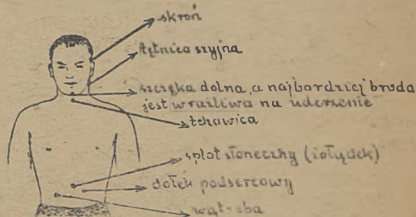 skroń
tętnica szyjna
szczęka dolna, a najbardziej broda
jest wrażliwa na uderzenie
tchawica
splot słoneczny (żołądek)
dołek podsercowy
wątroba